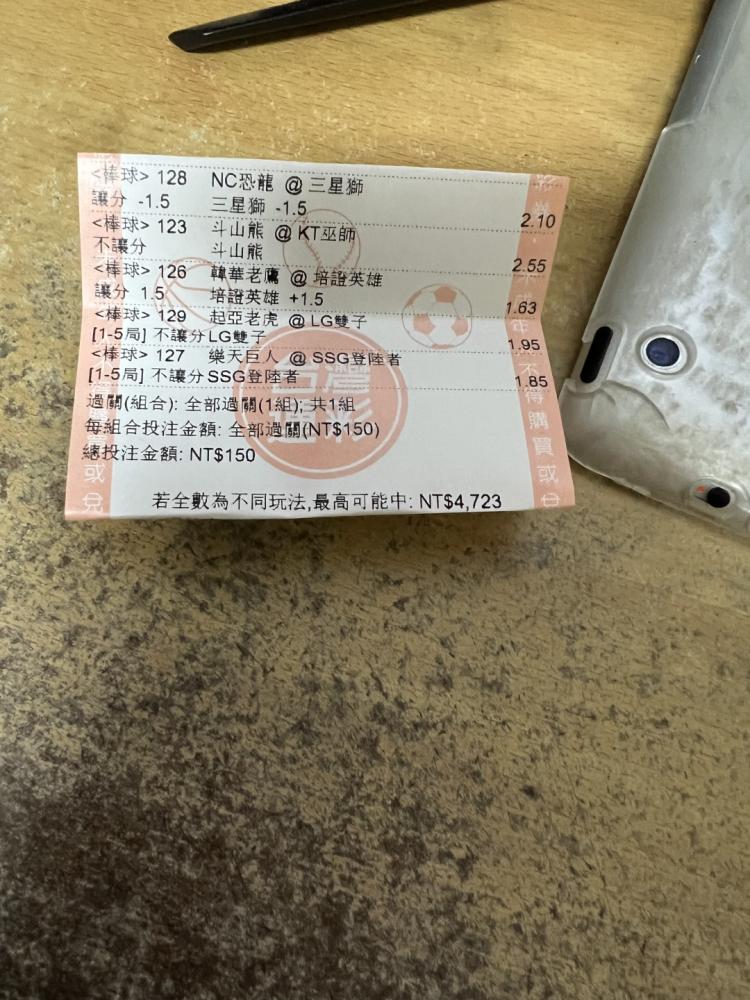 <棒球> 128 NC恐龍 @ 三星獅
讓分 -1.5 三星獅 -1.5 2.10
<棒球> 123 斗山熊 @ KT巫師
不讓分 斗山熊 2.55
<棒球> 126 韓華老鷹 @ 培證英雄
讓分 1.5 培證英雄 +1.5 1.63
<棒球> 129 起亞老虎 @ LG雙子
[1-5局] 不讓分 LG雙子 1.95
<棒球> 127 樂天巨人 @ SSG登陸者
[1-5局] 不讓分 SSG登陸者 1.85
過關(組合): 全部過關(1組); 共1組
每組合投注金額: 全部過關(NT$150)
總投注金額: NT$150
若全數為不同玩法,最高可能中: NT$4,723
台灣
運彩
年
不得購買或兌